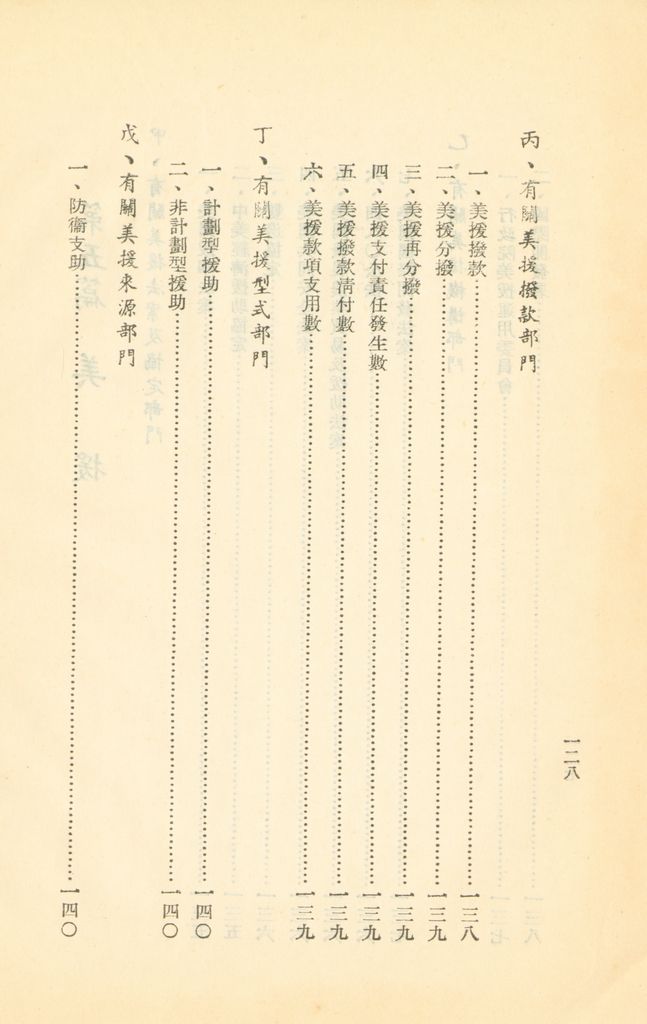 一二八
丙、有關美援撥款部門
一、美援撥款……一三八
二、美援分撥……一三九
三、美援再分撥……一三九
四、美援支付責任發生數……一三九
五、美援撥款淸付數……一三九
六、美援款項支用數……一三九
丁、有關美援型式部門
一、計劃型援助……一四〇
二、非計劃型援助……一四〇
戊、有關美援來源部門
一、防衞支助……一四〇